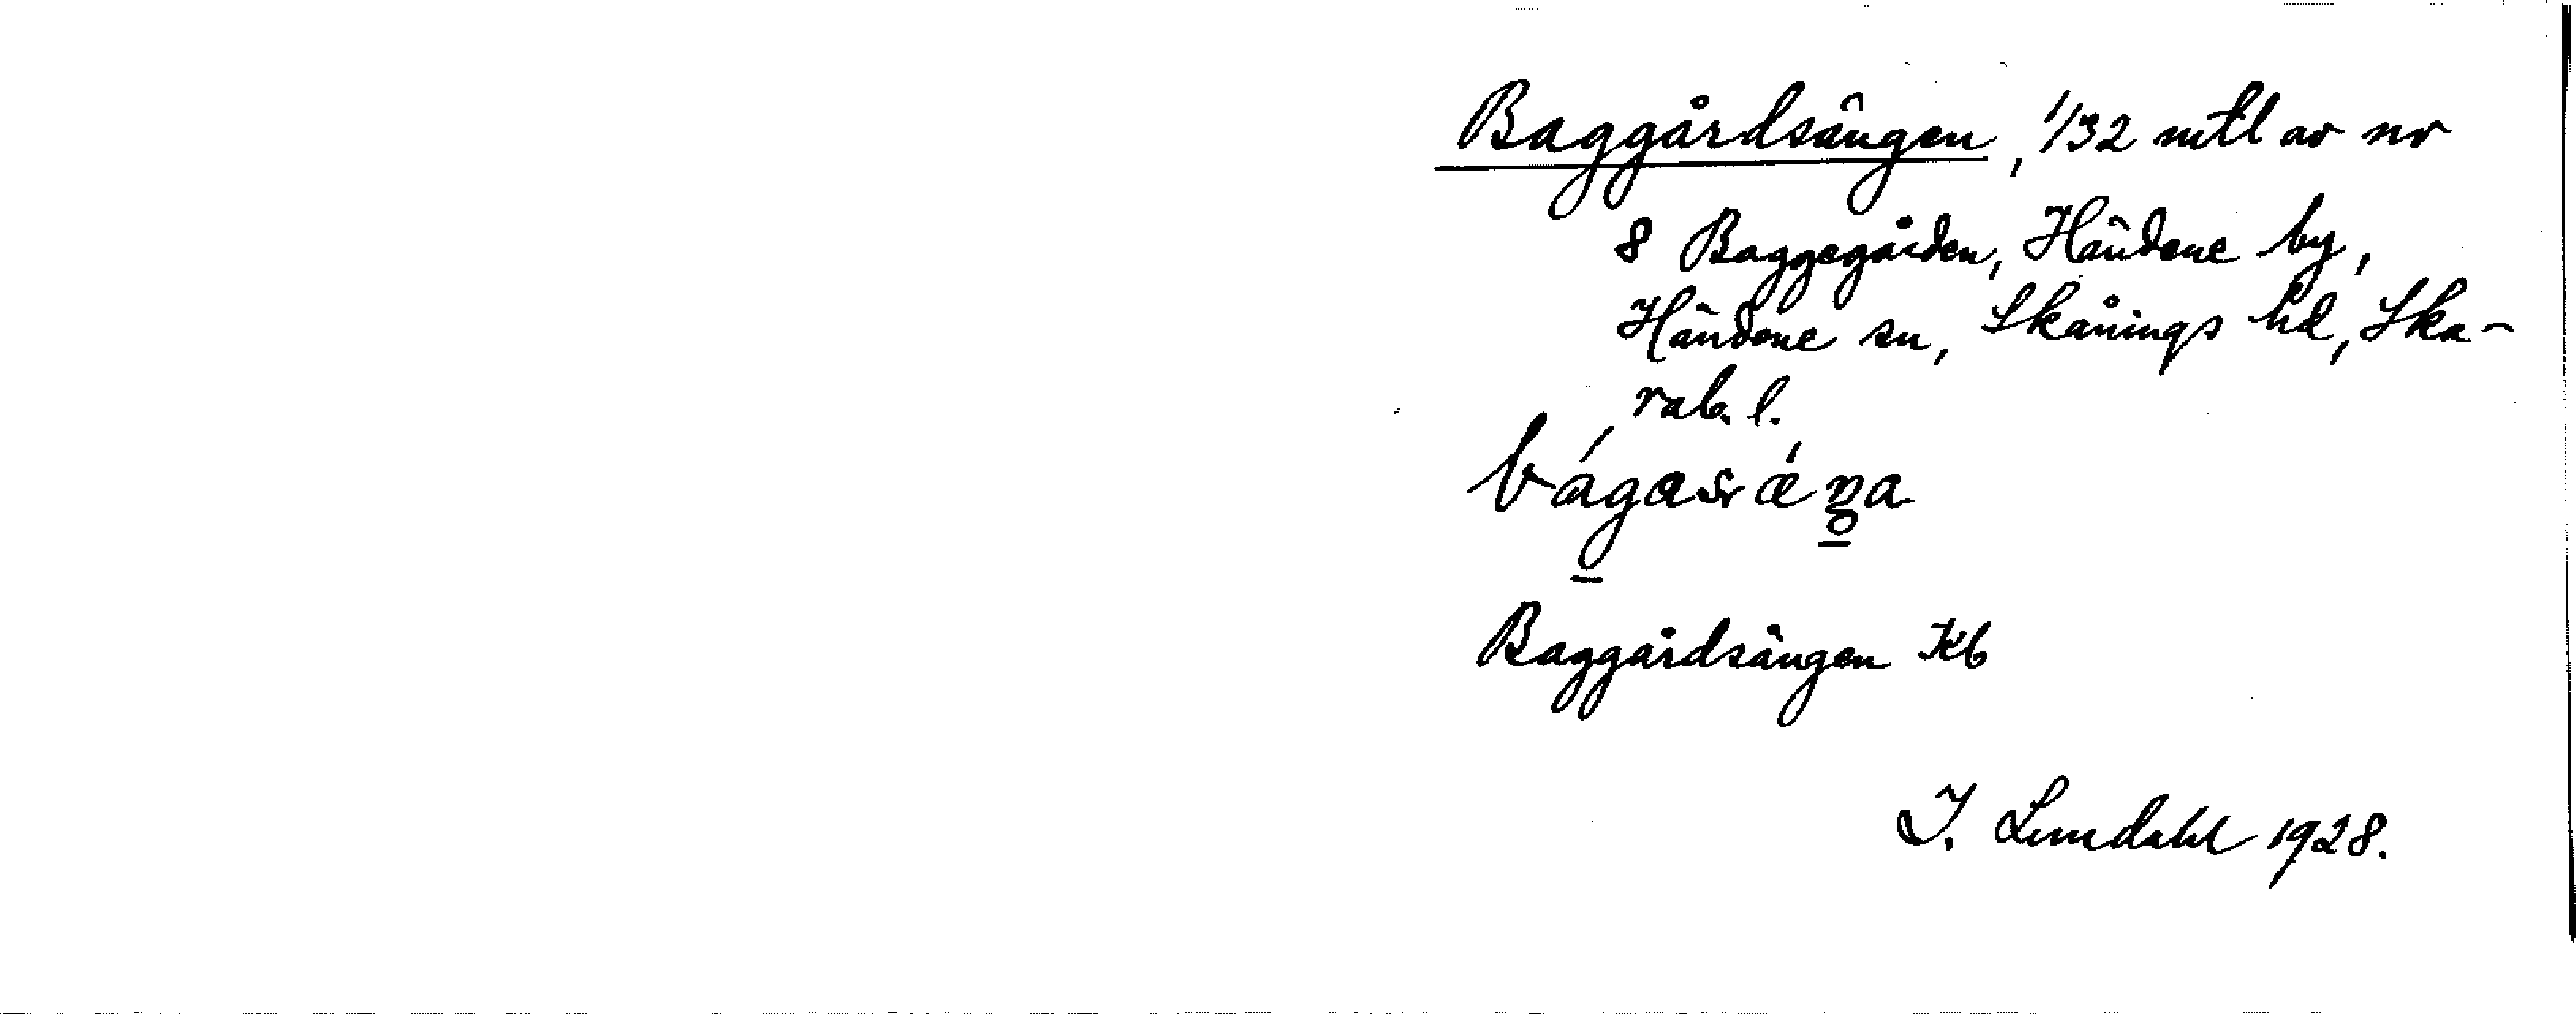 Baggårdsängen, 1/32 mtl av nr
8 Baggegården, Händene by,
Händene sn, Skånings hd, Ska-
rab. l.
Baggårdsängen Kb
J. Lundahl 1928.